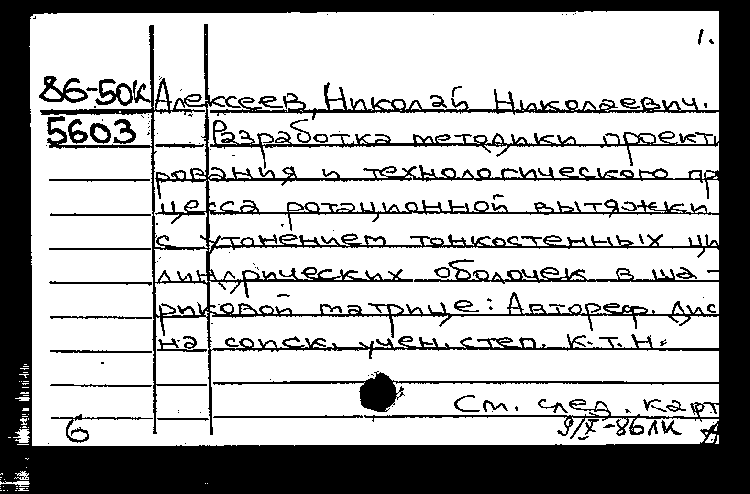 1.
86-50К Алексеев, Николай Николаевич.
5603 Разработка методики проекти
рования и технологического про
цесса ротационной вытяжки
с утонением тонкостенных ци
линдрических оболочек в ша-
риковой матрице: Автореф. дис
на соиск. учен. степ. к.т.н.
См. след. карт
6 9/X-86 ЛК